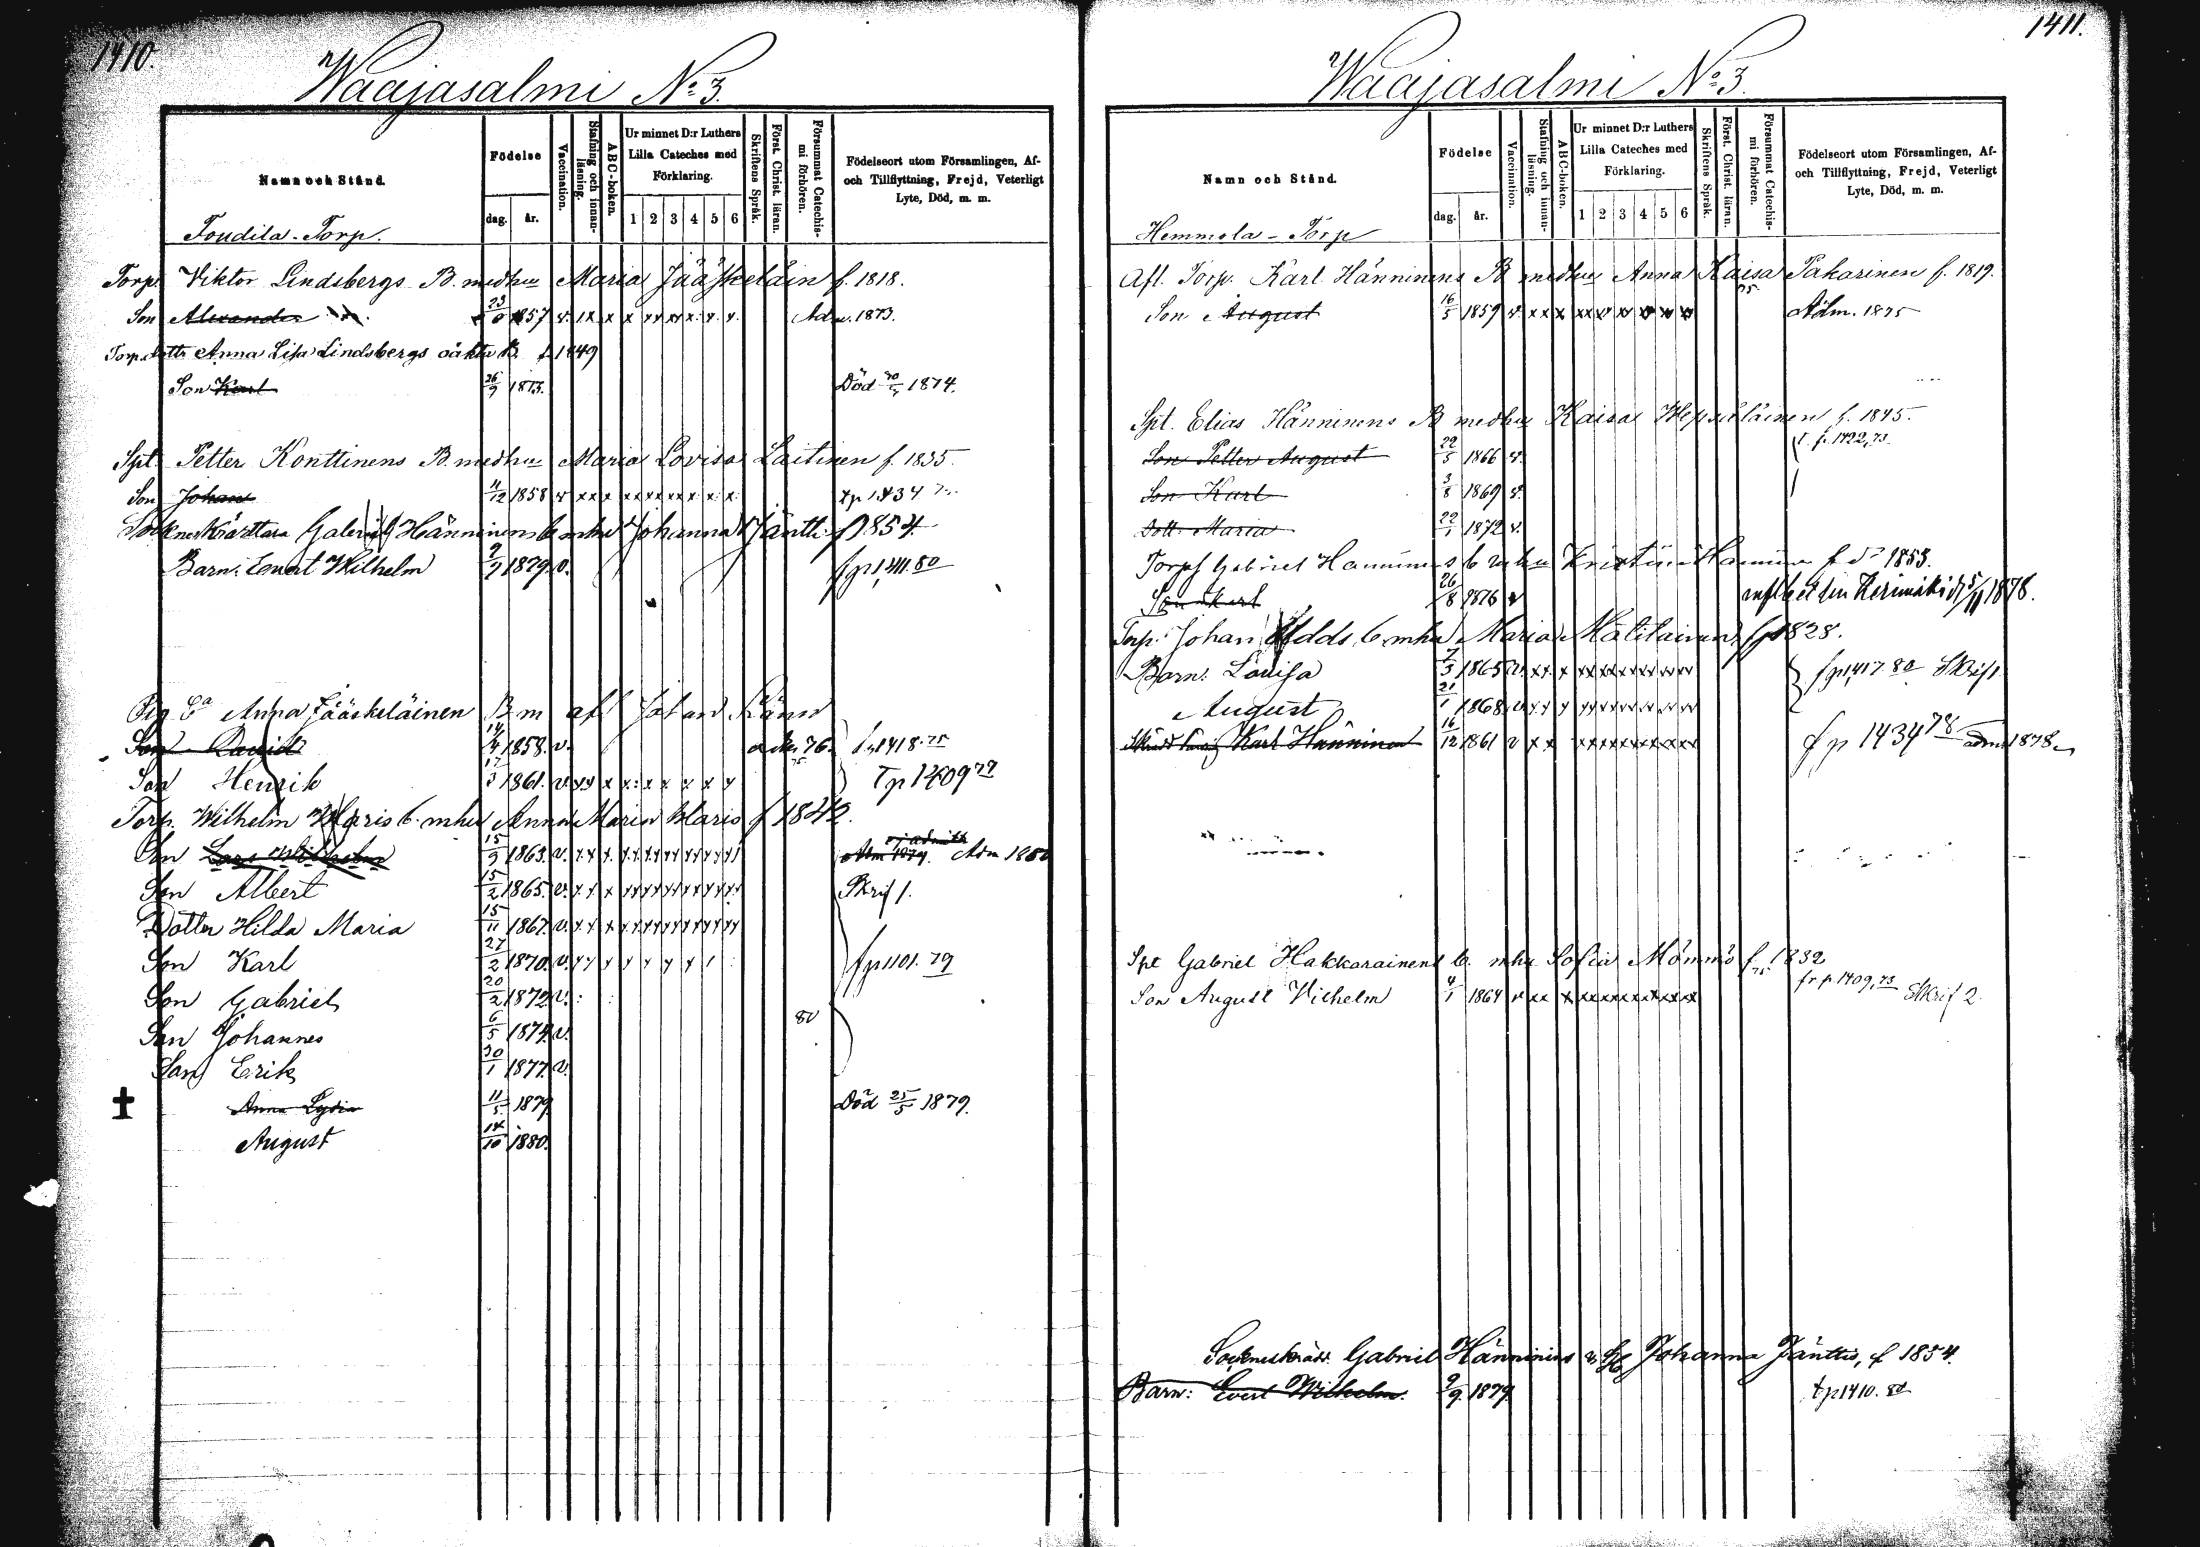 1410.
Waajasalmi No 3.
Namn och Stånd.
Födelse
dag. år.
Vaccination.
Stafning och innan-läsning.
ABC-boken.
Ur minnet D:r Luthers Lilla Cateches med Förklaring.
1 2 3 4 5 6
Skriftens Språk.
Först. Christ. läran.
Försummat Catechis-mi förhören.
Födelseort utom Församlingen, Af- och Tillflyttning, Frejd, Veterligt Lyte, Död, m. m.
Torp.
Torp. Viktor Lindsbergs B. medhu Maria Jääskeläin f. 1818.
Son Alexander 1857 v. Adm. 1873.
Anna Lisa Lindsbergs oäkta B. f. 1849
Son Karl 26/9 1873. Död 1874.
Spt. Petter Konttinens B. medhu Maria Lovisa Laitinen f. 1835.
Son Johan 4/12 1858 v xxx tp 1434
Hänninens b mhu Johanna Jäntti f 1854
Barn: Evert Wilhelm 9/9 1879. v. fp 1411.80
Anna Jääskeläinen B m afl Johan
Son David 1858. v. 76. 1418.75
Son Henrik 17/3 1861. v. Tp 1409 77
Torp. Wilhelm b. mhu Anna Maria f 1842
Son Lars Wilhelm 15/9 1863. v. Adm 1879. Adm 1880
Son Albert 15/2 1865. v. Skrif 1.
Dotter Hilda Maria 15/11 1867. v.
Son Karl 27/2 1870. v. fp 1101. 79
Son Gabriel 20/2 1872. v.
Son Johannes 6/5 1874. v. 80
Son Erik 30/1 1877. v.
Anna Lydia 11/5 1879. Död 25/5 1879.
August 14/10 1880.
1411.
Waajasalmi No 3.
Namn och Stånd.
Födelse
dag. år.
Vaccination.
Stafning och innan-läsning.
ABC-boken.
Ur minnet D:r Luthers Lilla Cateches med Förklaring.
1 2 3 4 5 6
Skriftens Språk.
Först. Christ. läran.
Försummat Catechis-mi förhören.
Födelseort utom Församlingen, Af- och Tillflyttning, Frejd, Veterligt Lyte, Död, m. m.
Hemmola - Torp
Afl. Torp. Karl Hänninens B medhu Anna Kaisa Pakarinen f. 1819.
Son August 16/5 1859 v. xxx 75 Adm. 1875
Spt. Elias Hänninens B medhu Kaisa f. 1845.
Son Petter August 22/5 1866 v. f. p. 1422, 73.
Son Karl 3/8 1869 v.
Dott. Maria 22/1 1872 v.
Torp Gabriel Hänninens b mhu 1853.
Son Karl 26/8 1876 v Kerimäki 1878.
Torp. Johan b. mhu Maria f 1828.
Barn: Lovisa 7/3 1865 v. fp 1417 80 Skrif 1
August 21/1 1868 v
Karl Hänninen 16/12 1861 v fp 1434 78 adm 1878
Spt Gabriel Hakkarainens b. mhu Sofia Mömmö f. 1832
Son August Vilhelm 4/1 1864 v xx fr p 1409, 73 Skrif 2.
Gabriel Hänninens Johanna Jänttis, f 1854.
Barn: Evert Wilhelm. 9/9 1879. tp 1410. 80